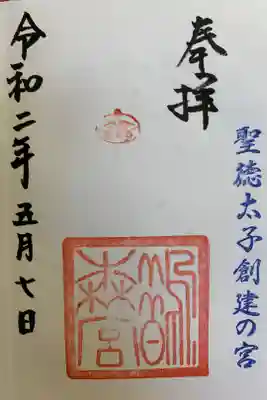 聖徳太子創建の宮
奉拝
鵲森宮
令和二年五月七日